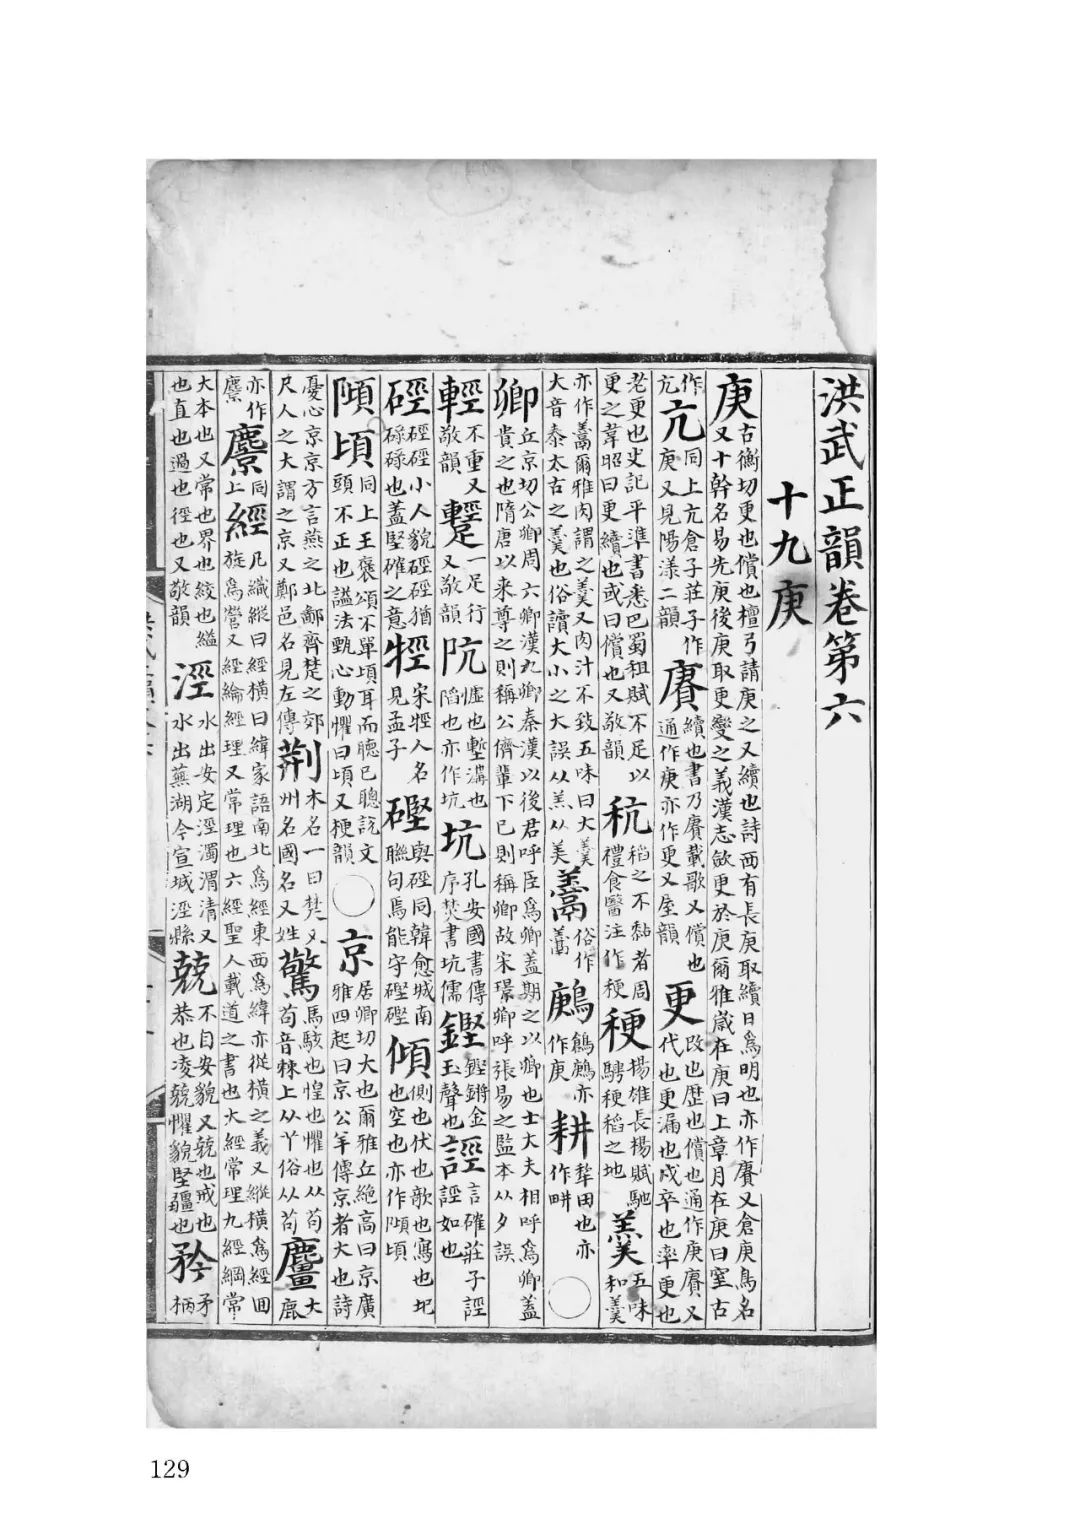 洪武正韻卷第六
十九庚
庚古衡切更也償也檀弓請庚之又續也詩西有長庚取續日爲明也亦作賡又倉庚鳥名又十幹名易先庚後庚取更變之義漢志斂更於庚爾雅歲在庚曰上章月在庚曰窒古
作亢亢同上亢倉子莊子作庚又見陽漾二韻賡續也書乃賡載歌又償也通作庚亦作更又屋韻更改也歷也償也通作庚賡又代也更漏也戍卒也率更也
老更也史記平準書悉巴蜀租賦不足以更之韋昭曰更續也或曰償也又敬韻秔稻之不黏者周禮食醫注作稉稉揚雄長楊賦馳騁稉稻之地羹五味和羹
亦作爾雅肉謂之羹又肉汁不致五味曰大羹大音泰太古之羹也俗讀大小之大誤从羔从美俗作鶊鶬鶊亦作庚耕犂田也亦作畊○
卿丘京切公卿周六卿漢九卿秦漢以後君呼臣爲卿蓋期之以卿也士大夫相呼爲卿蓋貴之也隋唐以來尊之則稱公儕輩下已則稱卿故宋璟卿呼張易之監本从夕誤
輕不重又敬韻一足行又敬韻阬虛也塹溝也陷也亦作坑坑孔安國書傳序焚書坑儒鏗鏗鏘金玉聲也誙言確莊子誙誙如也
硜硜硜小人貌硜硜猶碌碌也蓋堅確之意牼宋牼人名見孟子硻與硜同韓愈城南聯句焉能守硻硻傾側也伏也欹也寫也圮也空也亦作頃
頃同上王褒頌不單頃耳而聽已聰說文頭不正也謚法甄心動懼曰頃又梗韻○京居卿切大也爾雅丘絶高曰京廣雅四起曰京公羊傳京者大也詩
憂心京京方言燕之北鄙齊楚之郊凡人之大謂之京又鄭邑名見左傳荆木名一曰楚又州名國名又姓驚馬駭也惶也懼也从茍茍音棘上从丫俗从苟麠大鹿
亦作麖麖同上經凡織縱曰經橫曰緯家語南北爲經東西爲緯亦從橫之義又縱橫爲經回旋爲營又經綸經理又常理也六經聖人載道之書也大經常理九經綱常
大本也又常也界也絞也縊也直也過也徑也又敬韻涇水出安定涇濁渭清又水出蕪湖今宣城涇縣兢不自安貌又兢也戒也恭也凌兢懼貌堅彊也矜矛柄
129